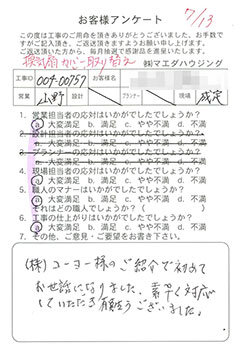 お客様アンケート
7/13
この度は工事のご用命を頂きありがとうございました。お手数で
すがご記入頂き、ご返送頂きますようお願い申し上げます。
ご返送頂いた方から、毎月抽選で感謝品を進呈いたします。
換気扇カバー取り替え
㈱マエダハウジング
工事ID 004-00757 お客様名
営業 山野 設計 プランナー 現場
1. 営業担当者の応対はいかがでしたでしょうか？
a 大変満足 b. 満足 c. やや不満 d. 不満
2. 設計担当者の応対はいかがでしたでしょうか？
a. 大変満足 b. 満足 c. やや不満 d. 不満
3. プランナーの応対はいかがでしたでしょうか？
a. 大変満足 b. 満足 c. やや不満 d. 不満
4. 現場担当者の応対はいかがでしたでしょうか？
a 大変満足 b. 満足 c. やや不満 d. 不満
5. 職人のマナーはいかがでしたでしょうか？
a 大変満足 b. 満足 c. やや不満 d. 不満
それはどの職人でしょうか（ ）
6. 工事の仕上がりはいかがでしたでしょうか？
a 大変満足 b. 満足 c. やや不満 d. 不満
7. その他、ご意見・ご要望をお書き下さい。
(株)ユーコー様のご紹介で初めて
お世話になりました。素早く対応
していただき有難うございました。